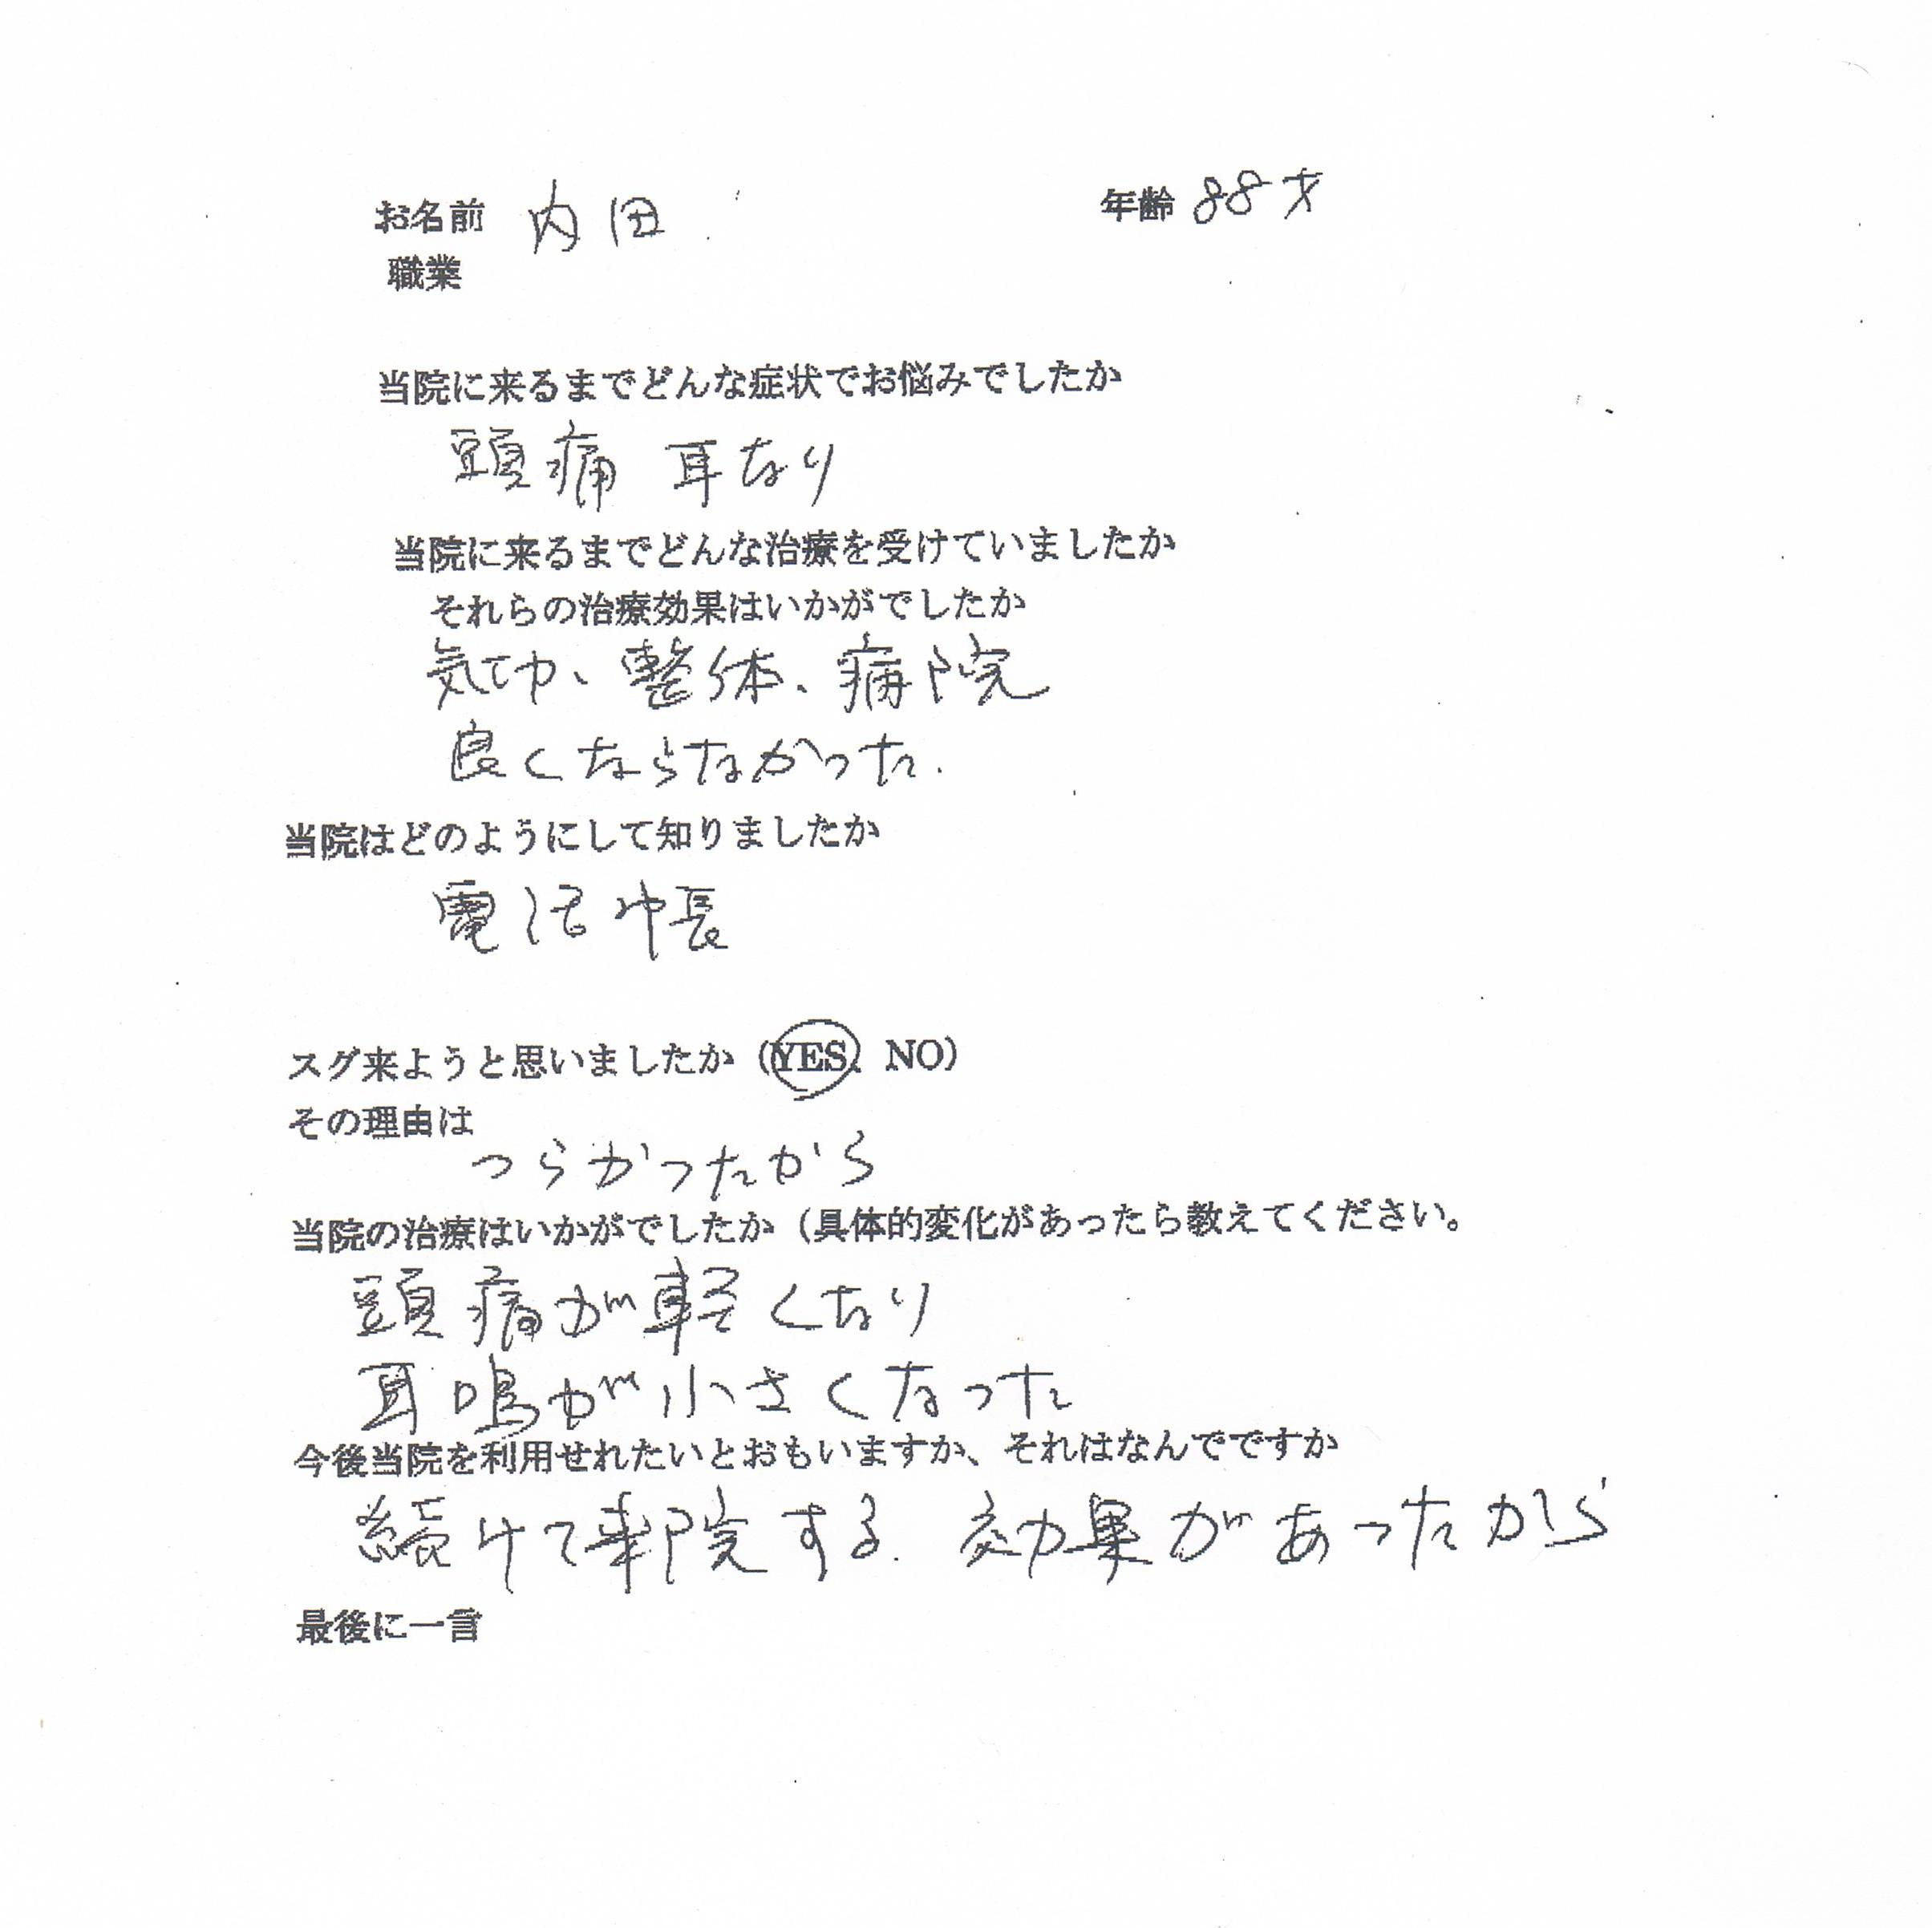 お名前 内田 年齢 88才
職業
当院に来るまでどんな症状でお悩みでしたか
頭痛 耳なり
当院に来るまでどんな治療を受けていましたか
それらの治療効果はいかがでしたか
気功、整体、病院
良くならなかった.
当院はどのようにして知りましたか
電話帳
スグ来ようと思いましたか (YES. NO)
その理由は
つらかったから
当院の治療はいかがでしたか (具体的変化があったら教えてください。
頭痛が軽くなり
耳鳴が小さくなった
今後当院を利用せれたいとおもいますか、それはなんでですか
続けて来院する. 効果があったから
最後に一言